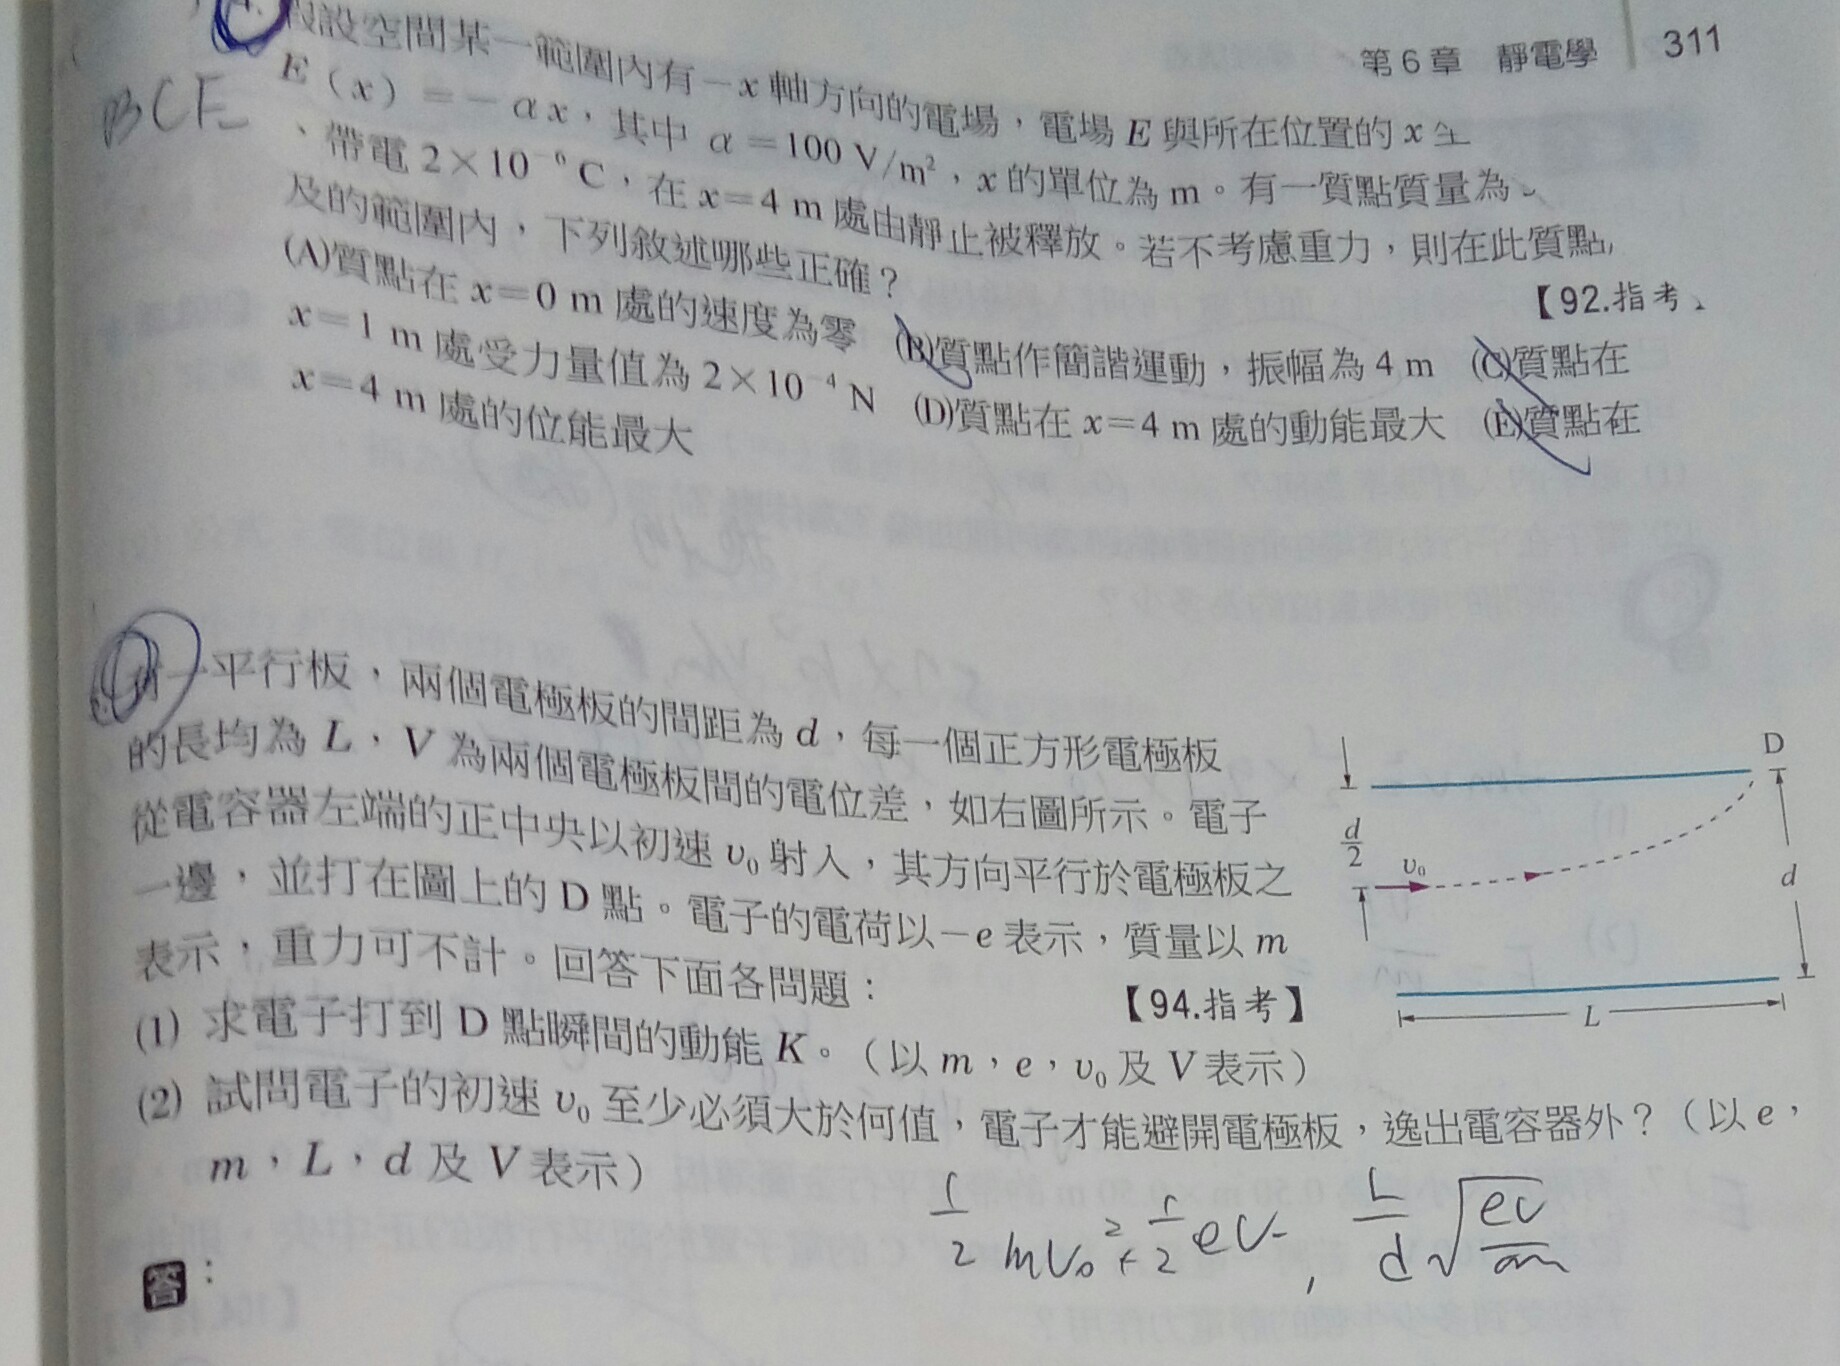 第6章 靜電學 311
假設空間某一範圍內有-x軸方向的電場,電場E與所在位置的x
E(x)=-αx,其中α=100 V/m²,x的單位為m。有一質點質量為
、帶電2×10⁻⁶C,在x=4 m處由靜止被釋放。若不考慮重力,則在此質點
及的範圍內,下列敘述哪些正確?
【92.指考
(A)質點在x=0 m處的速度為零 (B)質點作簡諧運動,振幅為4 m (C)質點在
x=1 m處受力量值為2×10⁻⁴ N (D)質點在x=4 m處的動能最大 (E)質點在
x=4 m處的位能最大
BCE
一平行板,兩個電極板的間距為d,每一個正方形電極板
的長均為L,V為兩個電極板間的電位差,如右圖所示。電子
從電容器左端的正中央以初速v₀射入,其方向平行於電極板之
一邊,並打在圖上的D點。電子的電荷以-e表示,質量以m
表示,重力可不計。回答下面各問題:
【94.指考】
(1) 求電子打到D點瞬間的動能K。(以m,e,v₀及V表示)
(2) 試問電子的初速v₀至少必須大於何值,電子才能避開電極板,逸出電容器外?(以e,
m,L,d及V表示)
D
d/2
v₀
d
L
1/2 mv₀²+1/2 eV, L/d √(eV/m)
答: